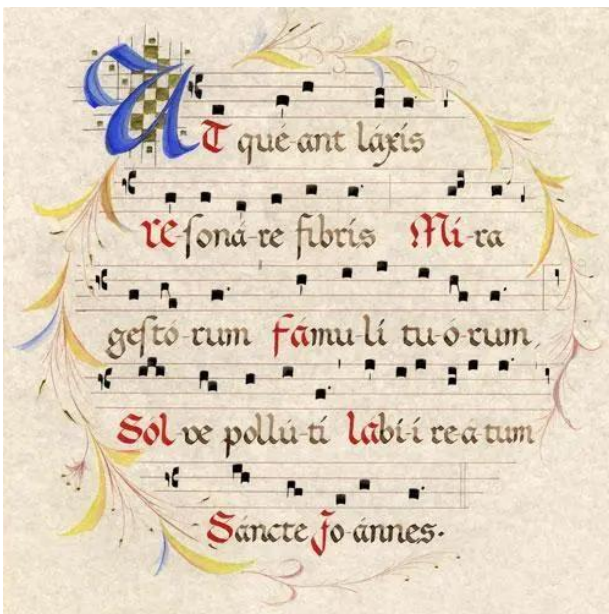 UT qué-ant láxis
re-soná-re fibris Mi-ra
gestó-rum fámu-li tu-ó-rum,
Sól-ve pollú-ti lábi-i re-a-tum
Sáncte Jo-ánnes.